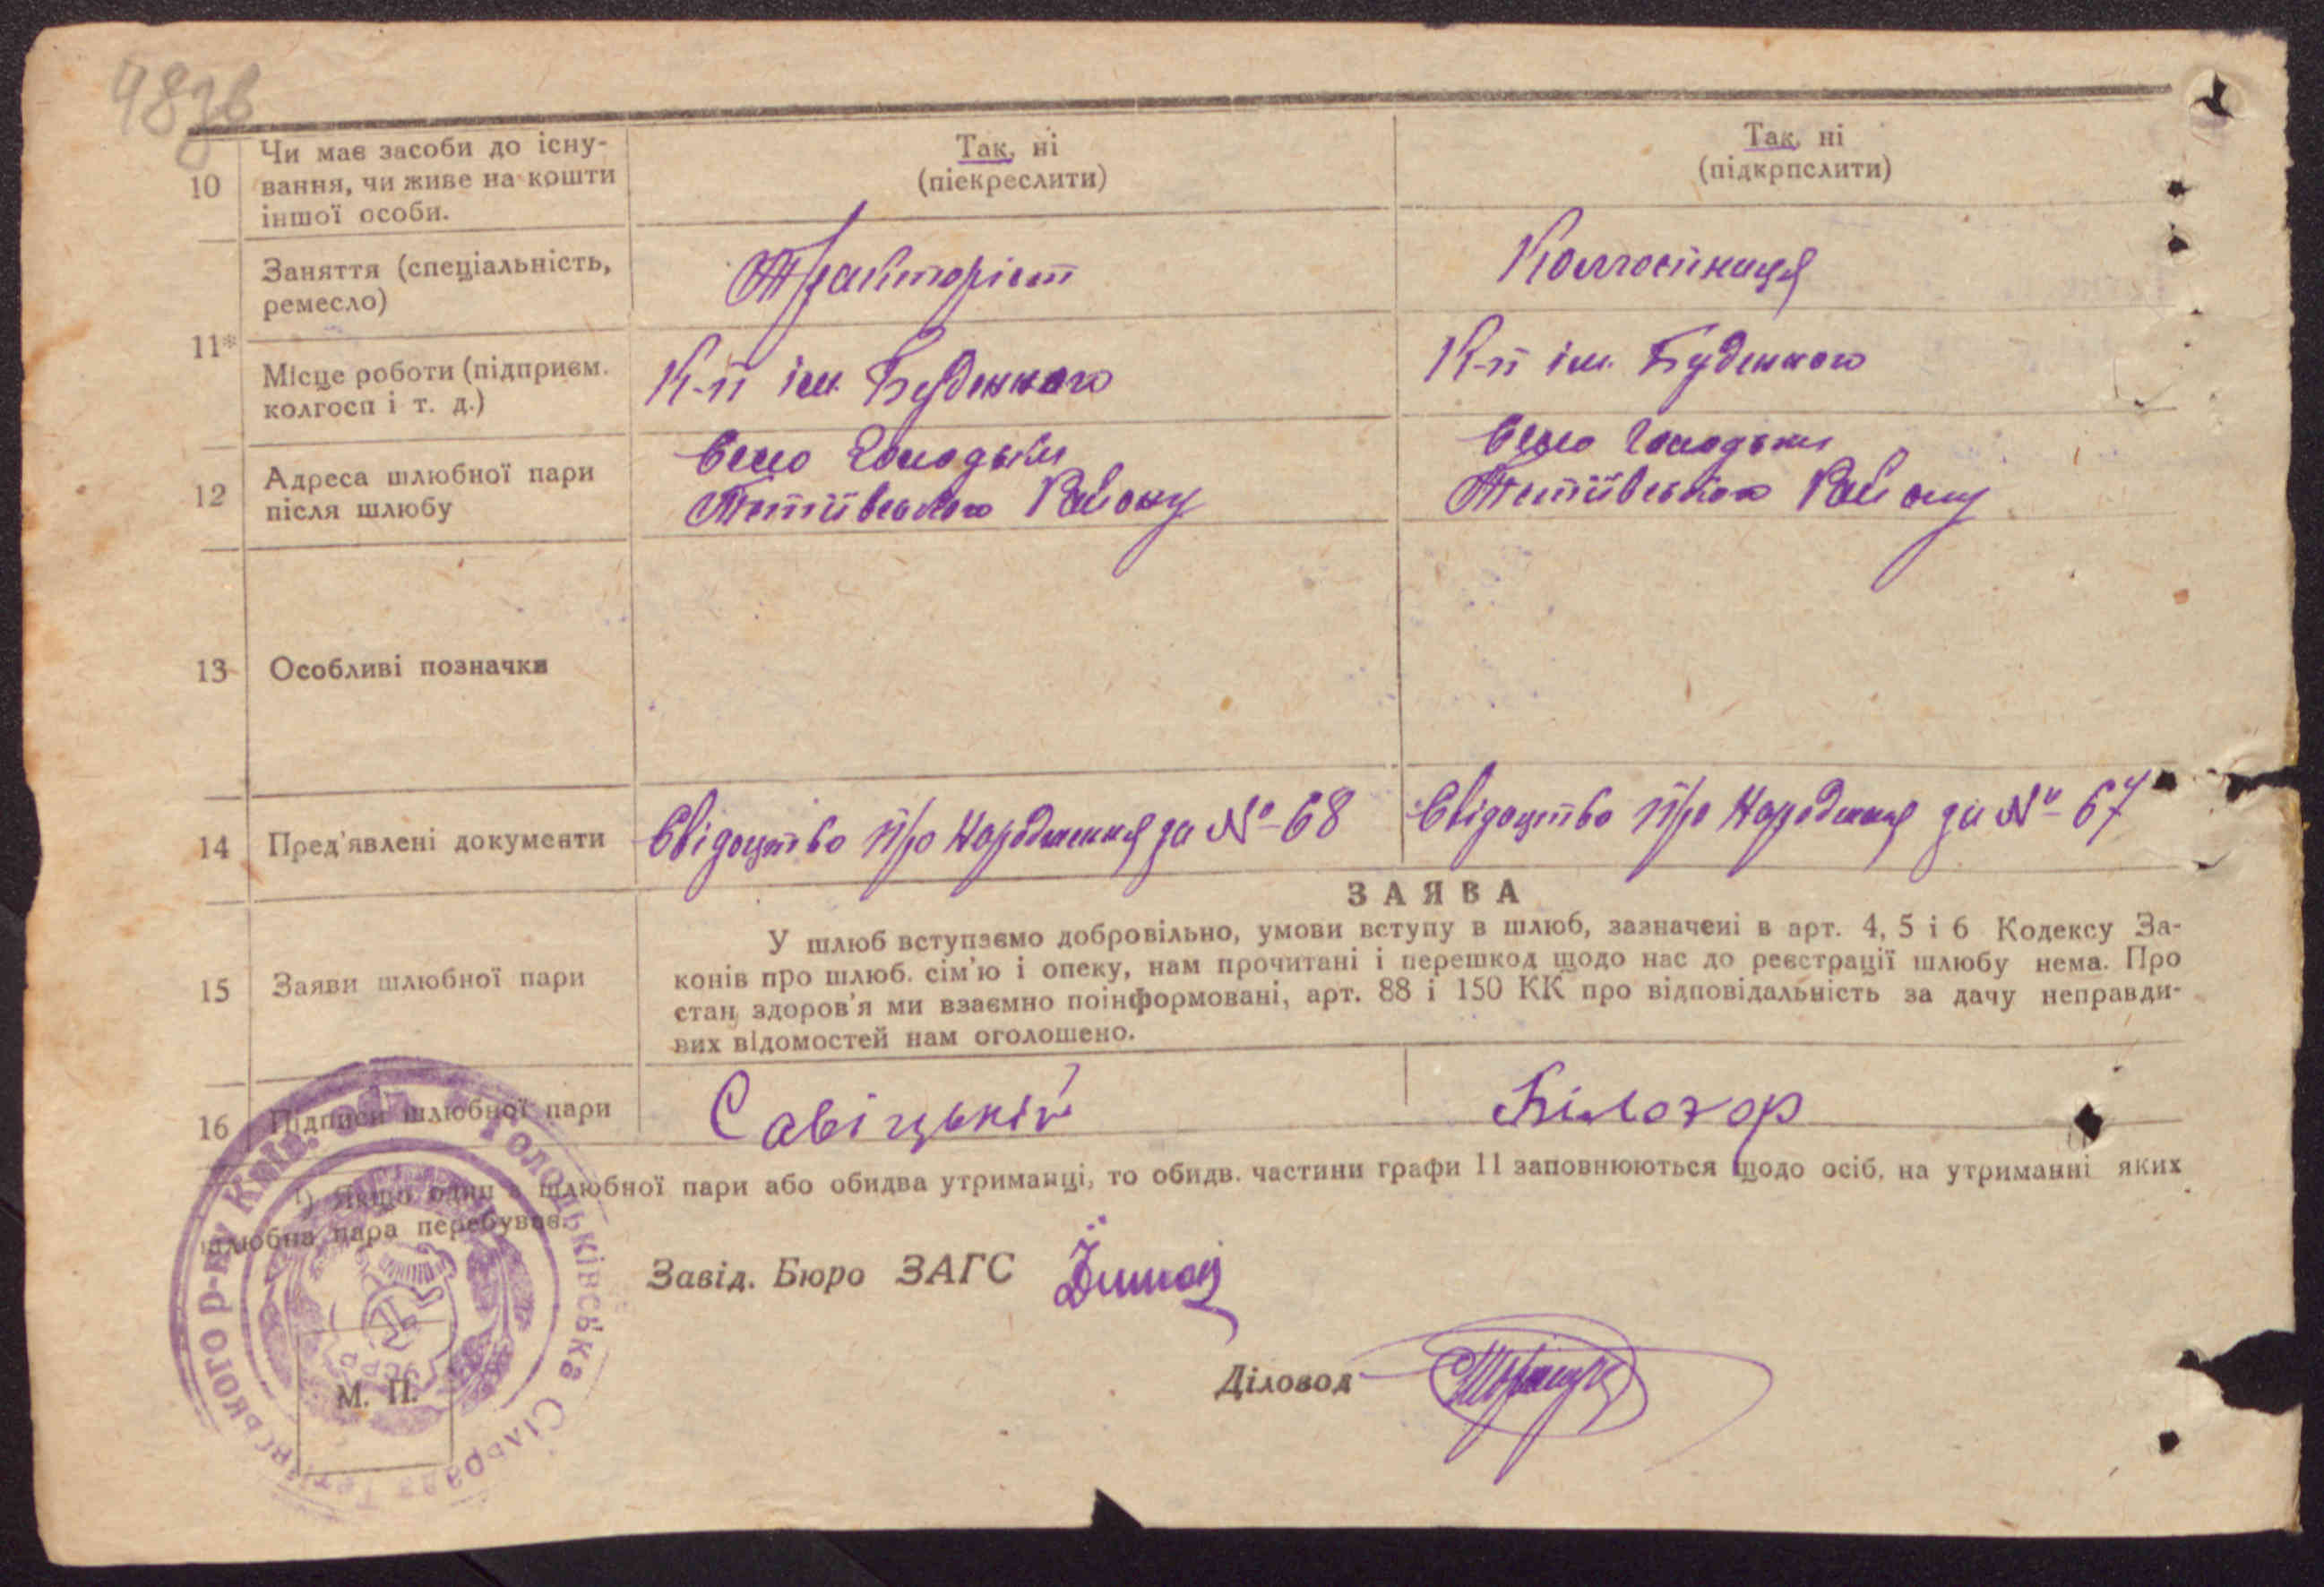 48зв
10 Чи має засоби до існу-
вання, чи живе на кошти
іншої особи.
Так, ні
(піекреслити)
Так, ні
(підкрпслити)
11*
Заняття (спеціальність,
ремесло)
Тракторіст
Колгоспниця
Місце роботи (підприєм.
колгосп і т. д.)
К-п ім. Буденного
К-п ім. Буденного
12 Адреса шлюбної пари
після шлюбу
Село Голодьки
Тетіївського Району
Село Голодьки
Тетіївського Району
13 Особливі позначки
14 Пред'явлені документи
Свідоцтво про Народження за № 68
Свідоцтво про Народження за № 67
15 Заяви шлюбної пари
ЗАЯВА
У шлюб вступаємо добровільно, умови вступу в шлюб, зазначені в арт. 4, 5 і 6 Кодексу За-
конів про шлюб. сім'ю і опеку, нам прочитані і перешкод щодо нас до реєстрації шлюбу нема. Про
стан здоров'я ми взаємно поінформовані, арт. 88 і 150 КК про відповідальність за дачу неправди-
вих відомостей нам оголошено.
16 Підписи шлюбної пари
Савіцький
Білогор
¹) Якщо один з шлюбної пари або обидва утриманці, то обидв. частини графи 11 заповнюються щодо осіб, на утриманні яких
шлюбна пара перебуває.
Завід. Бюро ЗАГС
Діловод
М. П.
Голодьківська Сільрада Тетіївського р-ну Київ. обл.